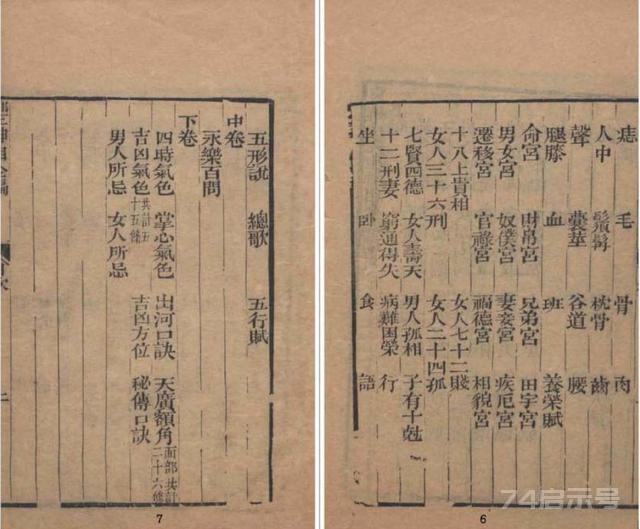 痣 毛 骨 肉
人中 鬚髯 枕骨 齒
聲 囊莖 谷道 腰
腿膝 血 班 養榮賦
命宮 財帛宮 兄弟宮 田宅宮
男女宮 奴僕宮 妻妾宮 疾厄宮
遷移宮 官祿宮 福德宮 相貌宮
十八上貴相
女人三十六刑 女人七十二賤 女人二十四孤
七賢四德 女人壽夭 男人孤相 子有十尅
十二刑妻 窮通得失 病難困榮 行
坐 臥 食 語
6
五形說 總歌 五行賦
中卷
永樂百問
下卷
四時氣色 掌心氣色 出河口訣 天廣額角 面部共計二十六條
吉凶氣色 共計五十五條 吉凶方位 秘傳口訣
男人所忌 女人所忌
7
74启示号